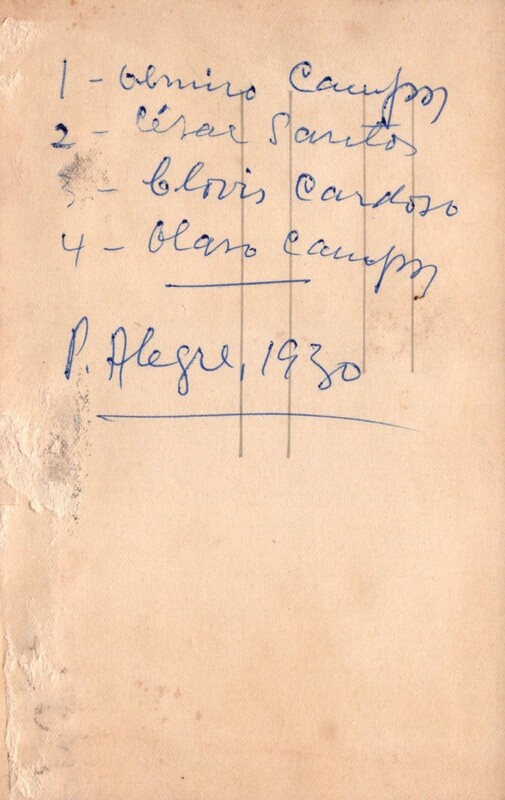 1 - Olmiro Campos
2 - César Santos
3 - Clovis Cardoso
4 - Olavo Campos
P. Alegre, 1930